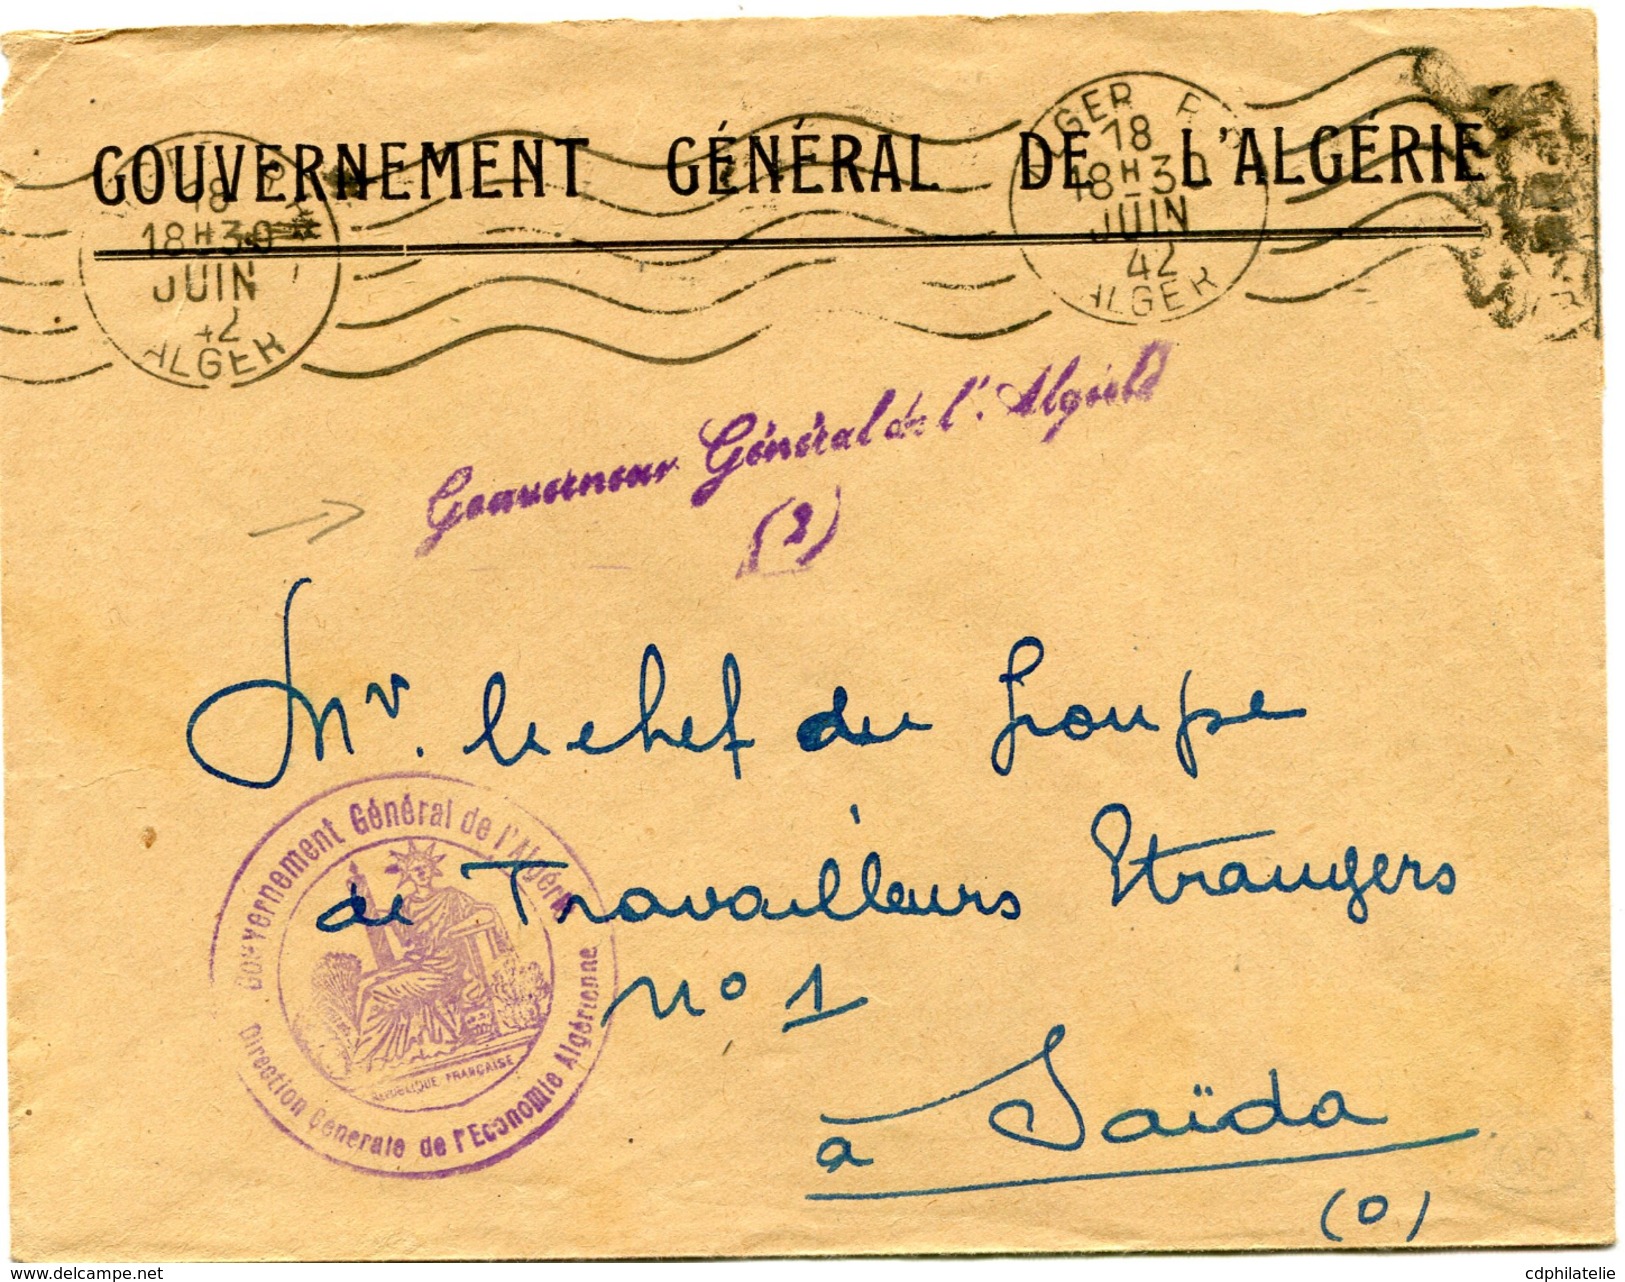 GOUVERNEMENT GÉNÉRAL DE L'ALGÉRIE
18
18H30
JUIN
42
ALGER
ALGER R
18
18H30
JUIN
42
ALGER
Gouverneur Général de l'Algérie
(2)
Mr. le chef du Groupe
de Travailleurs Etrangers
N° 1
à Saïda
(O)
Gouvernement Général de l'Algérie
Direction Générale de l'Economie Algérienne
REPUBLIQUE FRANÇAISE
delcampe.net
cdphilatelie